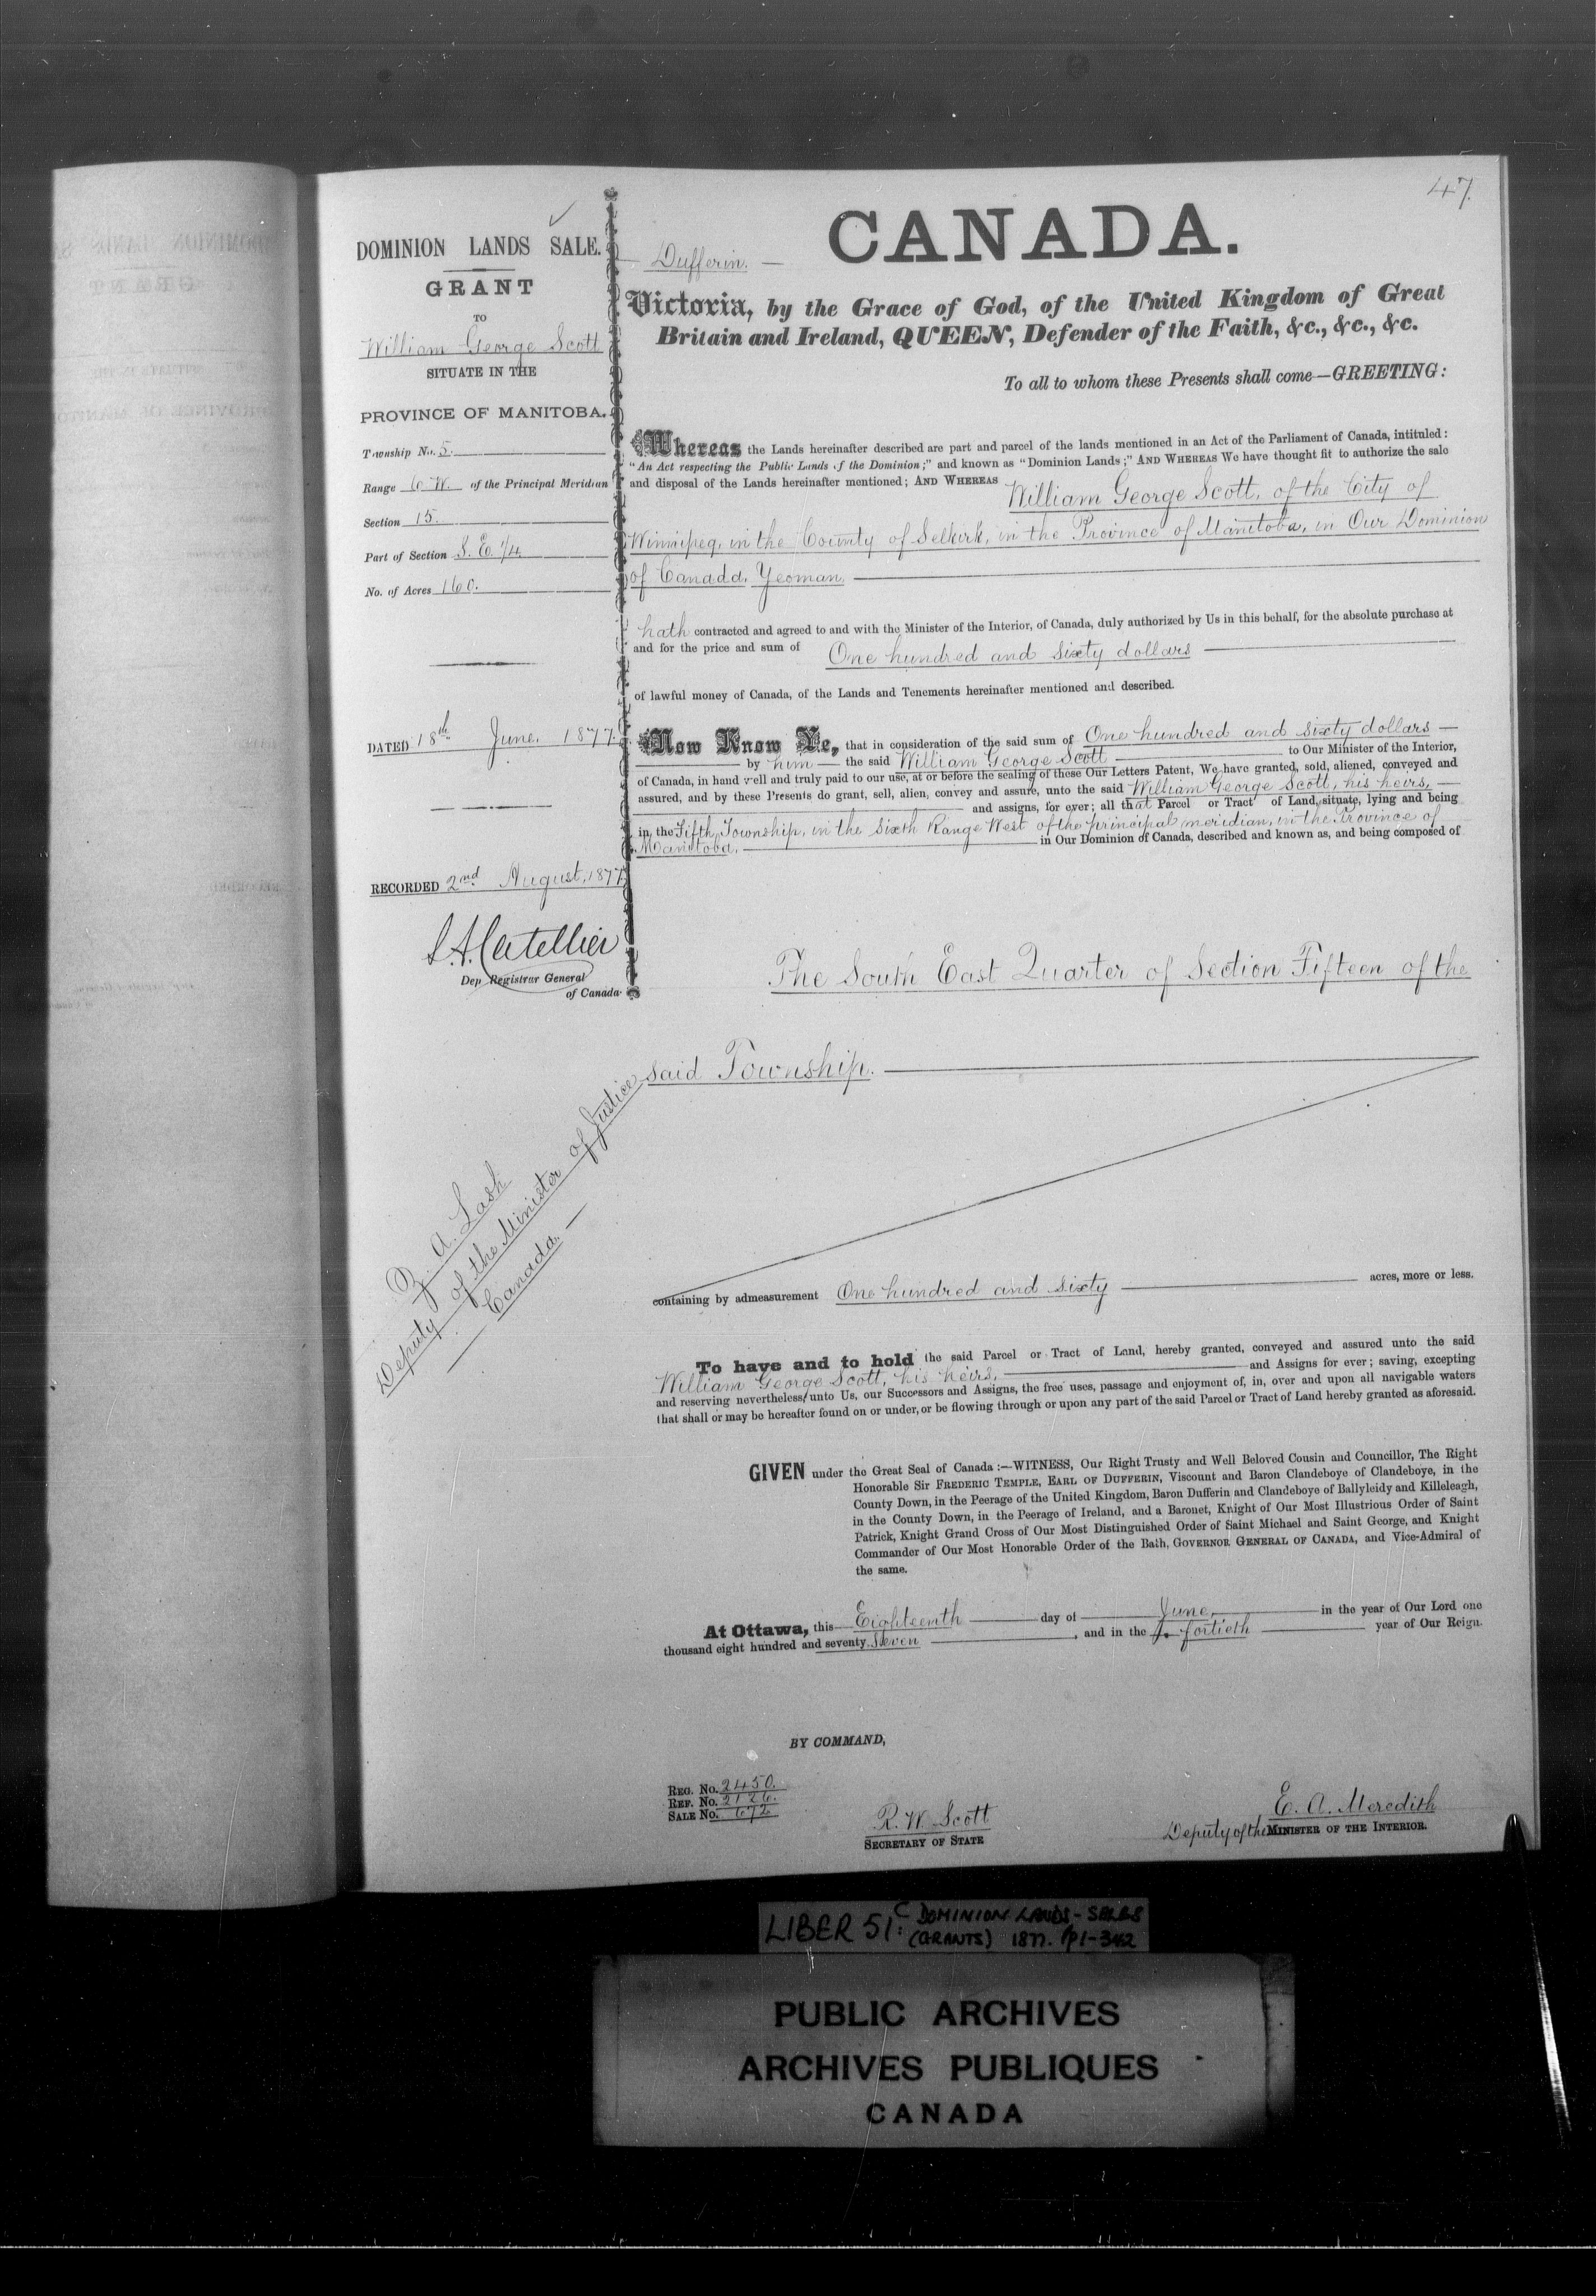 47.
DOMINION LANDS SALE.
GRANT
TO
William George Scott
SITUATE IN THE
PROVINCE OF MANITOBA.
Township No. 5.
Range 6 W. of the Principal Meridian
Section 15.
Part of Section S. E. 1/4
No. of Acres 160.
DATED 18th June, 1877.
RECORDED 2nd August, 1877
Dep Registrar General
of Canada.
Z. A. Lash
Deputy of the Minister of Justice
Canada.
Dufferin.
CANADA.
Victoria, by the Grace of God, of the United Kingdom of Great
Britain and Ireland, QUEEN, Defender of the Faith, &c., &c., &c.
To all to whom these Presents shall come—GREETING:
Whereas the Lands hereinafter described are part and parcel of the lands mentioned in an Act of the Parliament of Canada, intituled:
"An Act respecting the Public Lands of the Dominion;" and known as "Dominion Lands;" AND WHEREAS We have thought fit to authorize the sale
and disposal of the Lands hereinafter mentioned; AND WHEREAS William George Scott, of the City of
Winnipeg, in the County of Selkirk, in the Province of Manitoba, in Our Dominion
of Canada, Yeoman.
hath contracted and agreed to and with the Minister of the Interior, of Canada, duly authorized by Us in this behalf, for the absolute purchase at
and for the price and sum of One hundred and sixty dollars
of lawful money of Canada, of the Lands and Tenements hereinafter mentioned and described.
Now Know Ye, that in consideration of the said sum of One hundred and sixty dollars
by him the said William George Scott to Our Minister of the Interior,
of Canada, in hand well and truly paid to our use, at or before the sealing of these Our Letters Patent, We have granted, sold, aliened, conveyed and
assured, and by these Presents do grant, sell, alien, convey and assure, unto the said William George Scott, his heirs,
and assigns, for ever; all that Parcel or Tract of Land, situate, lying and being
in the Fifth Township, in the Sixth Range West of the principal meridian, in the Province of
Manitoba, in Our Dominion of Canada, described and known as, and being composed of
The South East Quarter of Section Fifteen of the
said Township.
containing by admeasurement One hundred and sixty acres, more or less.
To have and to hold the said Parcel or Tract of Land, hereby granted, conveyed and assured unto the said
William George Scott, his heirs, and Assigns for ever; saving, excepting
and reserving nevertheless unto Us, our Successors and Assigns, the free uses, passage and enjoyment of, in, over and upon all navigable waters
that shall or may be hereafter found on or under, or be flowing through or upon any part of the said Parcel or Tract of Land hereby granted as aforesaid.
GIVEN under the Great Seal of Canada:—WITNESS, Our Right Trusty and Well Beloved Cousin and Councillor, The Right
Honorable Sir FREDERIC TEMPLE, EARL OF DUFFERIN, Viscount and Baron Clandeboye of Clandeboye, in the
County Down, in the Peerage of the United Kingdom, Baron Dufferin and Clandeboye of Ballyleidy and Killeleagh,
in the County Down, in the Peerage of Ireland, and a Baronet, Knight of Our Most Illustrious Order of Saint
Patrick, Knight Grand Cross of Our Most Distinguished Order of Saint Michael and Saint George, and Knight
Commander of Our Most Honorable Order of the Bath, GOVERNOR GENERAL OF CANADA, and Vice-Admiral of
the same.
At Ottawa, this Eighteenth day of June, in the year of Our Lord one
thousand eight hundred and seventy seven, and in the fortieth year of Our Reign.
BY COMMAND,
REG. No. 2450.
REF. No. 2126.
SALE No. 672
R. W. Scott
SECRETARY OF STATE
E. A. Meredith
Deputy of the MINISTER OF THE INTERIOR.
LIBER 51: C DOMINION LANDS - SALES
(GRANTS) 1877. pp1-342
PUBLIC ARCHIVES
ARCHIVES PUBLIQUES
CANADA